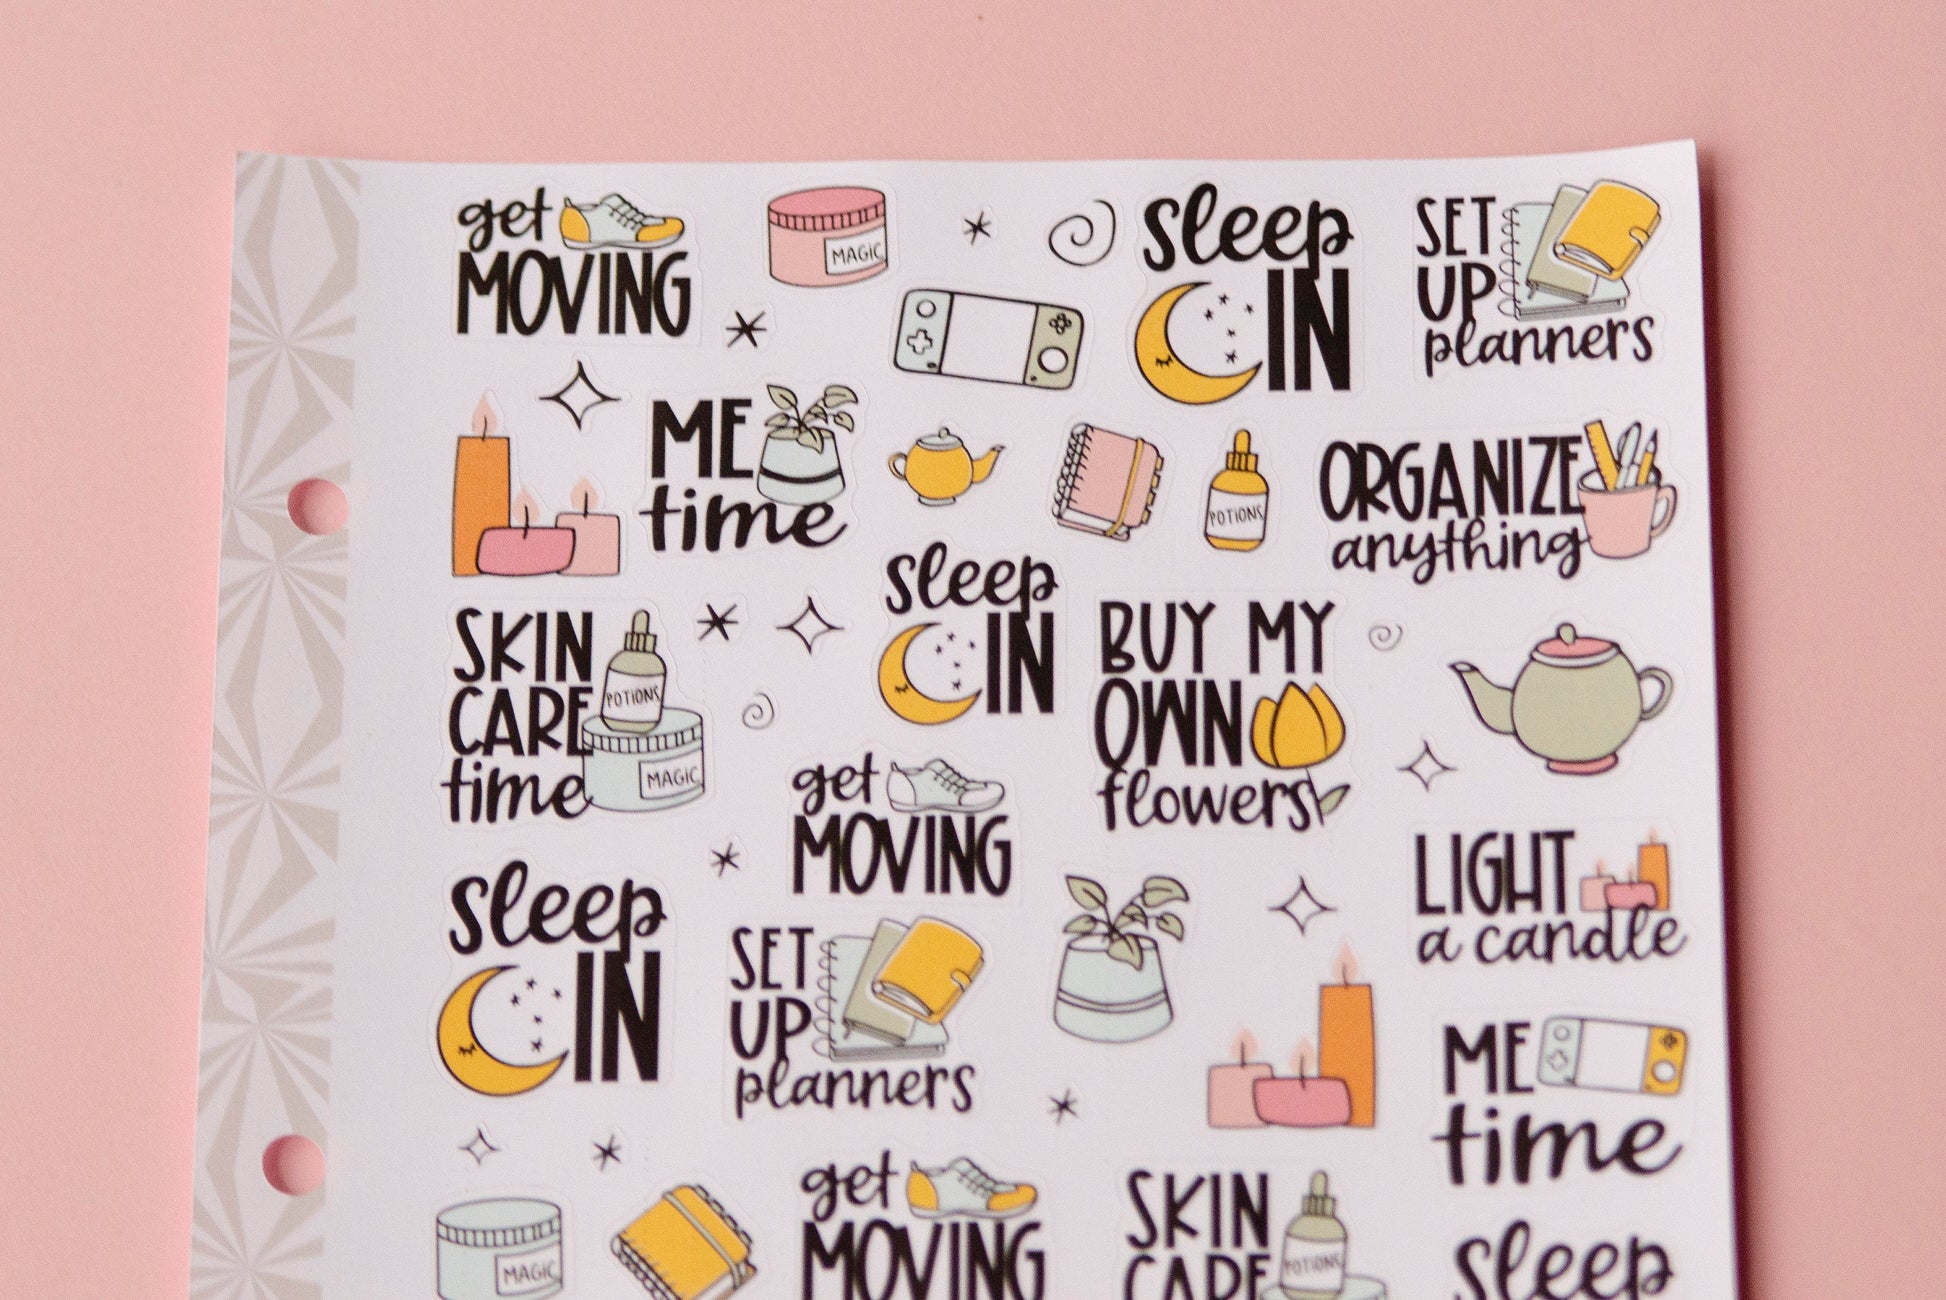 get
MOVING
MAGIC
sleep
IN
SET
UP
planners
ME
time
POTIONS
ORGANIZE
anything
SKIN
CARE
time
POTIONS
MAGIC
sleep
IN
BUY MY
OWN
flowers
get
MOVING
LIGHT
a candle
sleep
IN
SET
UP
planners
ME
time
MAGIC
get
MOVING
SKIN
CARE
POTIONS
sleep